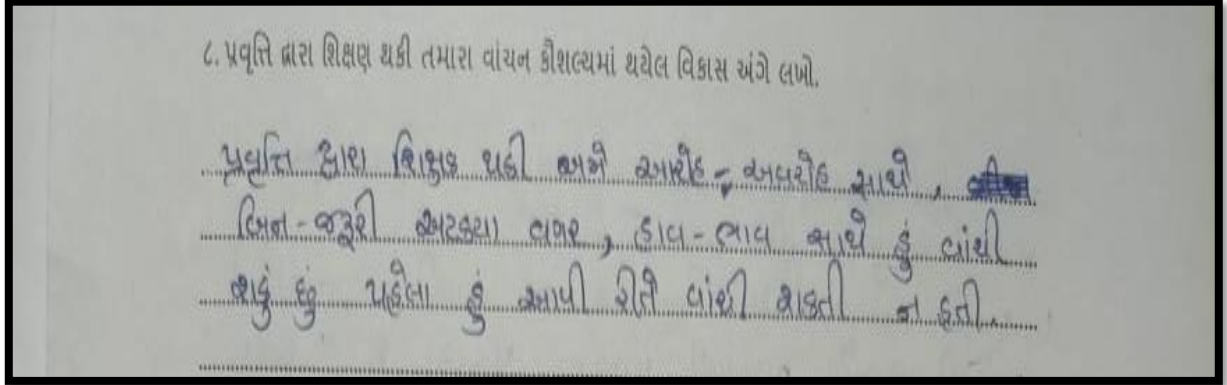 ૮. પ્રવૃત્તિ દ્વારા શિક્ષણ થકી તમારા વાંચન કૌશલ્યમાં થયેલ વિકાસ અંગે લખો.
પ્રવૃત્તિ દ્વારા શિક્ષક થકી અમે આરોહ - અવરોહ સાથે,
બિન-જરૂરી અટક્યા વગર, હાવ-ભાવ સાથે હું વાંચી
શકું છું પહેલા હું આવી રીતે વાંચી શકતી ન હતી.